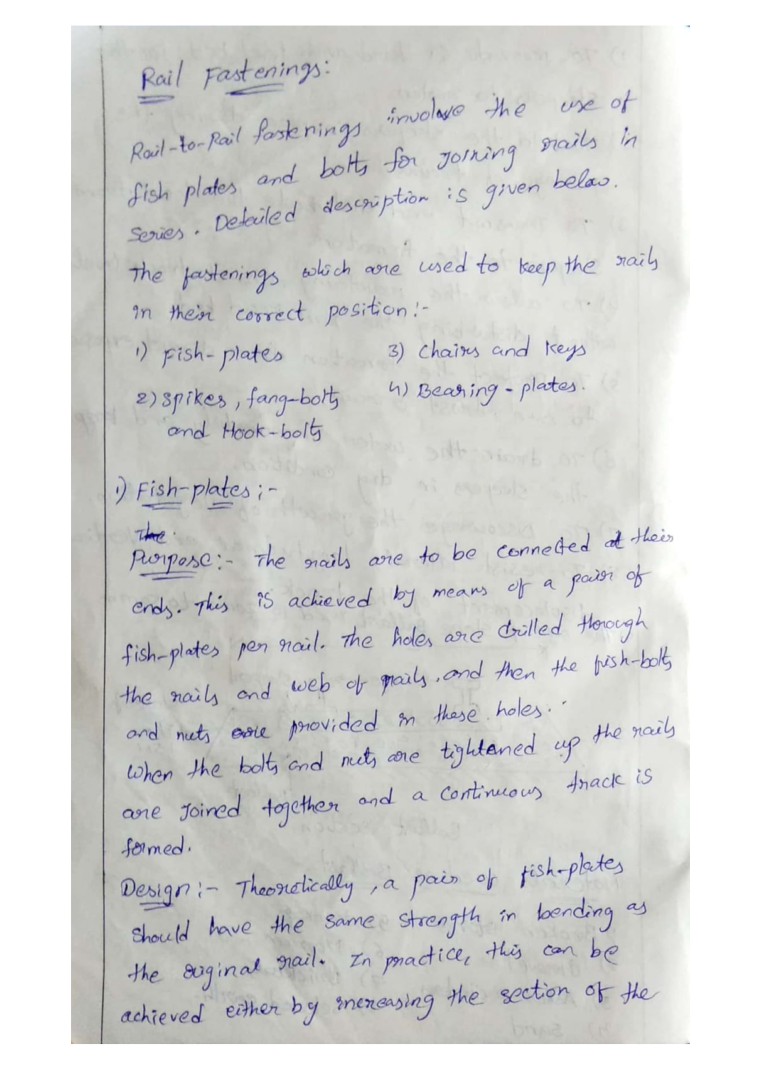 Rail Fastenings:
Rail-to-Rail fastenings involve the use of
fish plates and bolts for Joining rails in
Series. Detailed description is given below.
The fastenings which are used to keep the rails
In their correct position:-
1) Fish-plates 3) Chairs and Keys
2) Spikes, fang-bolts 4) Bearing-plates.
and Hook-bolts
1) Fish-plates:-
The
Purpose:- The rails are to be connected at their
ends. This is achieved by means of a pair of
fish-plates per rail. The holes are drilled thorough
the rails and web of rails. and then the fish-bolts
and nuts are provided in these holes.
When the bolts and nuts are tightened up the rails
are Joined together and a Continuous track is
formed.
Design:- Theoretically, a pair of fish-plates
Should have the Same Strength in bending as
the original rail. In practice, this can be
achieved either by increasing the section of the